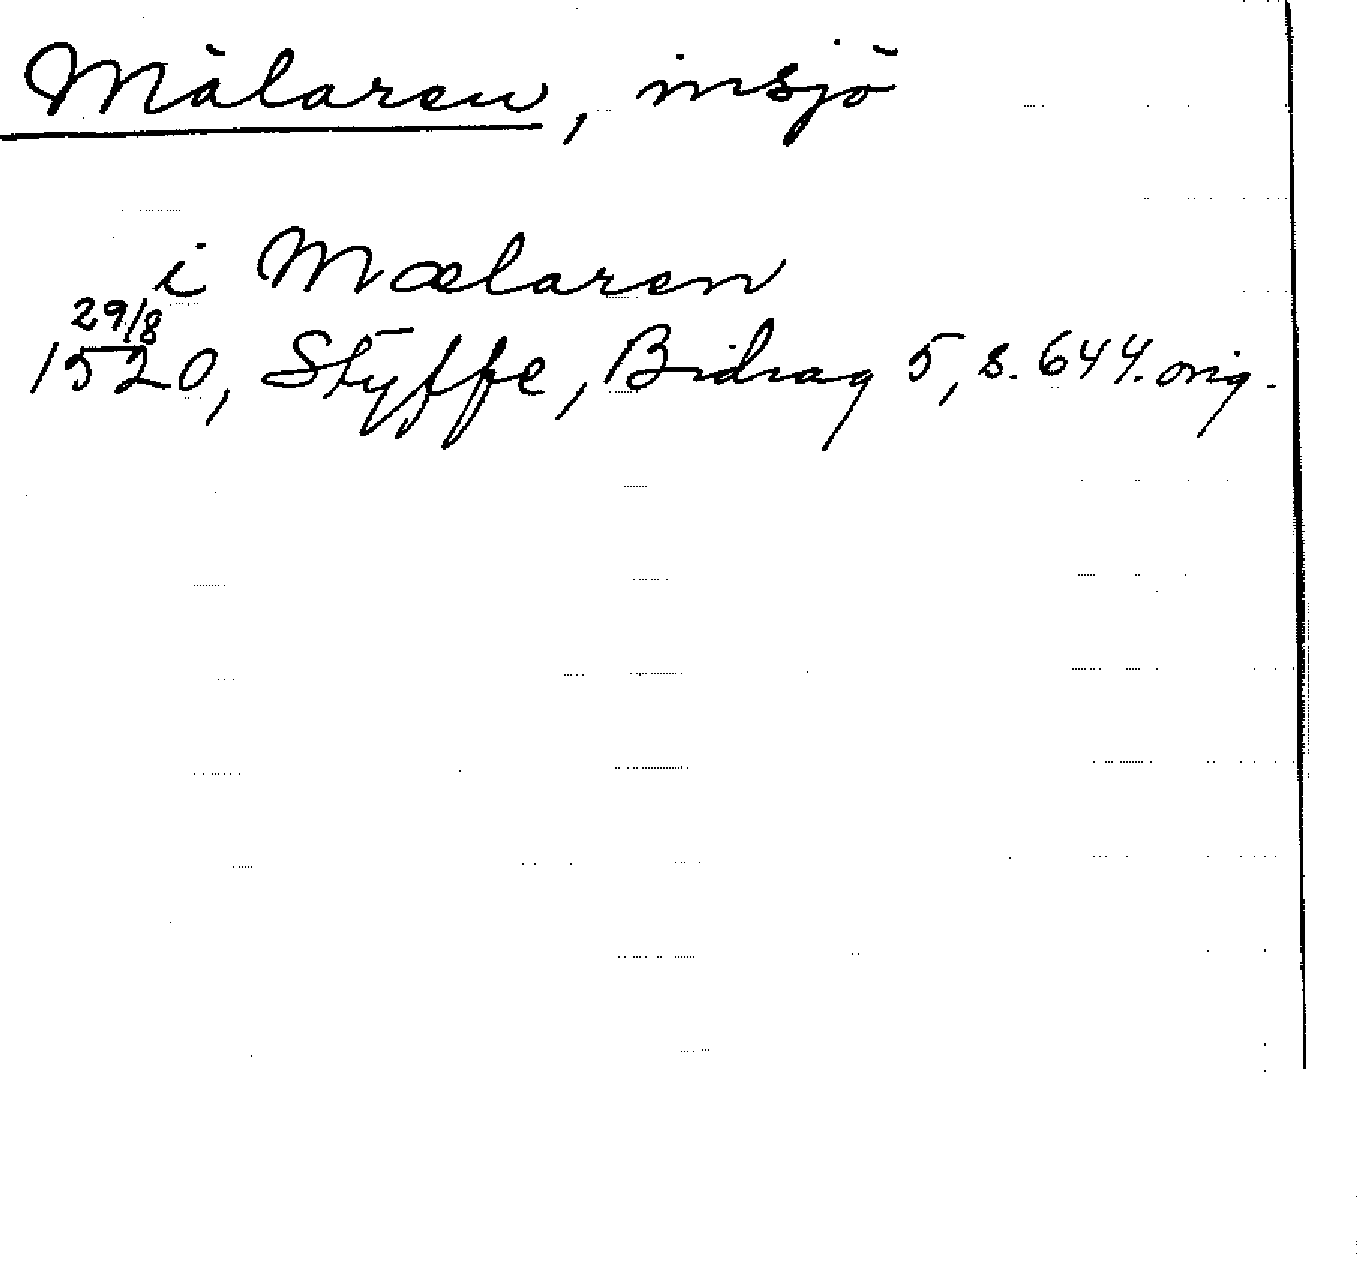 Mälaren, insjö
i Mælaren
29/8
1520, Styffe, Bidrag 5, s. 644. orig.